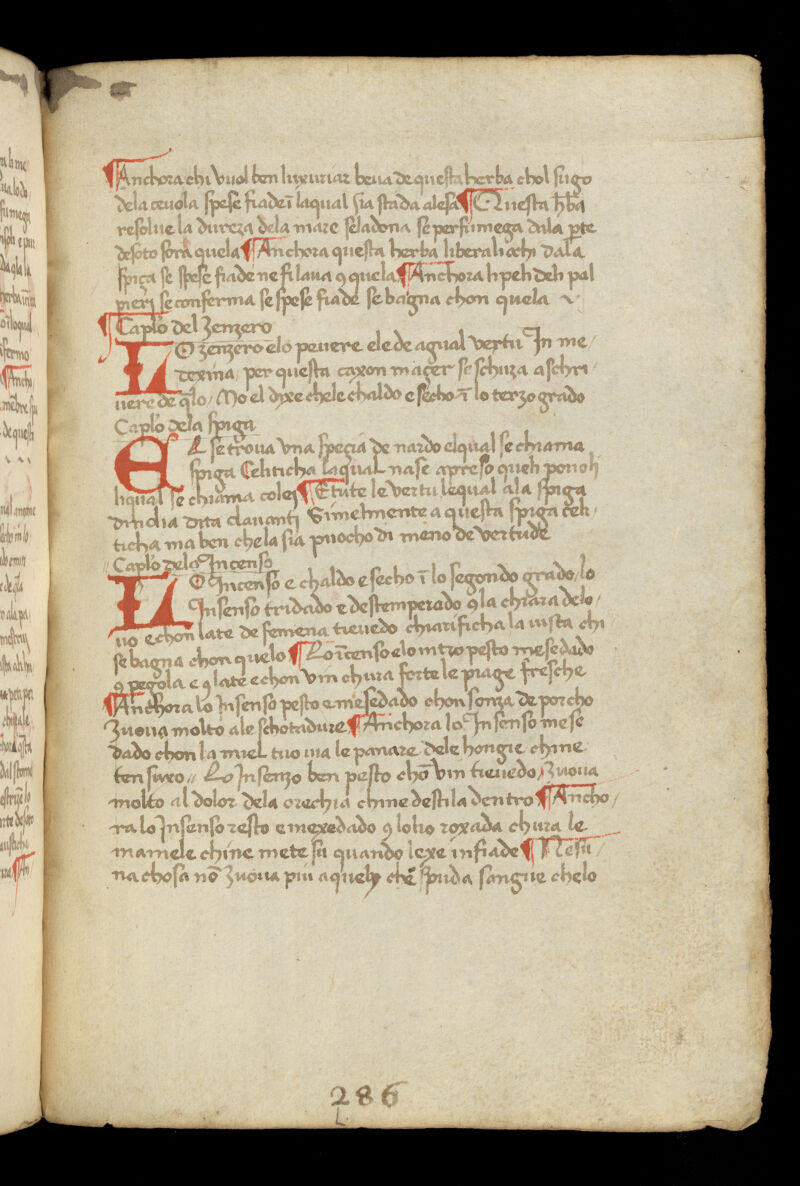 ¶Anchora chi vuol ben luxuriar beua de questa herba chol sugo
dela ceuola spese fiade ī laqual sia stada alesa ¶Questa hba
resolue la dureza dela mare seladona se perfumega dala pte
desoto sora quela ¶Anchora questa herba libera li ochi dala
spiça se spese fiade ne si laua ꝯ quela ¶Anchora li peli deli pal
pieri se conferma se spese fiade se bagna chon quela
¶Caplo del Zenzero
LO zenzero elo peuere ele de agual vertu In me
dexina per questa caxon maçer se schuza a schri
uere de qlo / Mo el dyxe chele chaldo e secho ī lo terzo grado
Caplo dela spiga
EL se troua vna specia de nardo elqual se chiama
spiga Celiticha laqual nase apreso queli ponoli
liqual se chiama colei ¶E tute le vertu lequal a la spiga
dindia dita clauanti Simelmente a questa spiga celi
ticha ma ben che la sia puocho di meno de vertude
Caplo delo Incenso
LO Incenso e chaldo e secho ī lo segondo grado / lo
Insenso tridado e destemperado ꝯ la chiara delo
uo e chon late de femena tieuedo chiarificha la uista chi
se bagna chon quelo ¶Lo īcenso elo mtro pesto mesedado
ꝯ pegola e ꝯ late e chon vin chura forte le piage fresche
¶Anchora lo Insenso pesto e mesedado chon sonza de porcho
zuoua molto ale schotadure ¶Anchora lo Insenso mese
dado chon la miel tuo uia le panare dele hongie chi ne
ten suxo // Lo Insenzo ben pesto chō vin tieuedo / zuoua
molto al dolor dela orechia chi ne destila dentro ¶Ancho /
ra lo Insenso resto e mexedado ꝯ lolio roxada chura le
mamele chi ne mete su quando lexe infiade ¶Nesu /
na chosa nō zuoua piu a queli che spuda sangue chelo
286